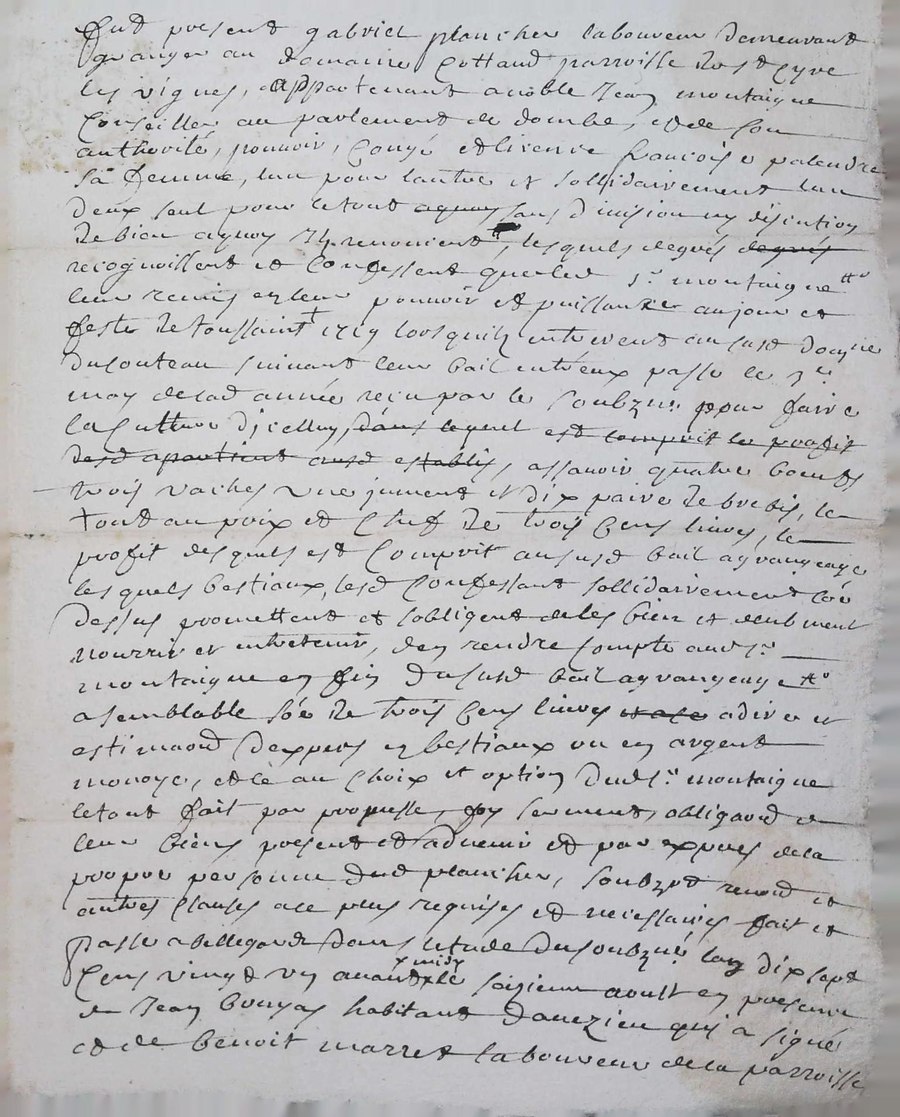 fud present gabriel plancher laboureur demeurant
granger au domaine Cottaud parroisse de st Cyre
les vignes, appartenant a noble Jean montaigne
Conseiller au parlement de dombe, et de son
authorité, pouvoir, Congé et licence francoise palendre
sa femme, lun pour lautre et sollidairement lun
deux seul pour le tout aquoy sans division ny discution
de bien aquoy Ils renoncent, lesquels degrés degrés
recognoissent et Confessent que led sr. montaigne
leur remis en leur pouvoir et puissance au jour et
feste de toussaint 1719 lorsquils entrerent au susd domaine
du Couteau suivant leur bail entreux passe le 3e.
may de lad année reçu par le soubzné pour faire
la Culture dicelluy, dans lequel est comprit le profit
desd apartient ausd establis, assavoir quatre boeufs
trois vaches une jument et dix paire de brebis, le
tout au poix et Chef de trois Cens livres, le
profit desquels est Comprit au susd bail agrangeage
lesquels bestiaux, lesd Confessant sollidairement Coe
dessus promettent et sobligent de les bien et deubment
nourrir et entretenir, den rendre Compte aud sr.
montaigne en fin du susd bail agrangeage
a semblable soe de trois Cens livres adire et
estimaon dexpers en bestiaux ou en argent
monoye, et le au Choix et option dud sr. montaigne
le tout fait par promesse, foy serment, obligaon de
leur biens present et advenir et par expres de la
propre personne dud plancher, soubzon renon et
autres Clauses ace plus requises et necessaires fait et
passe a bellegarde dans letude du soubzné lan dix sept
Cens vingt un avant midy le saizieme aoust en presence
de Jean bouyas habitant daveizieu qui a signé
et de benoit marret laboureur de la parroisse